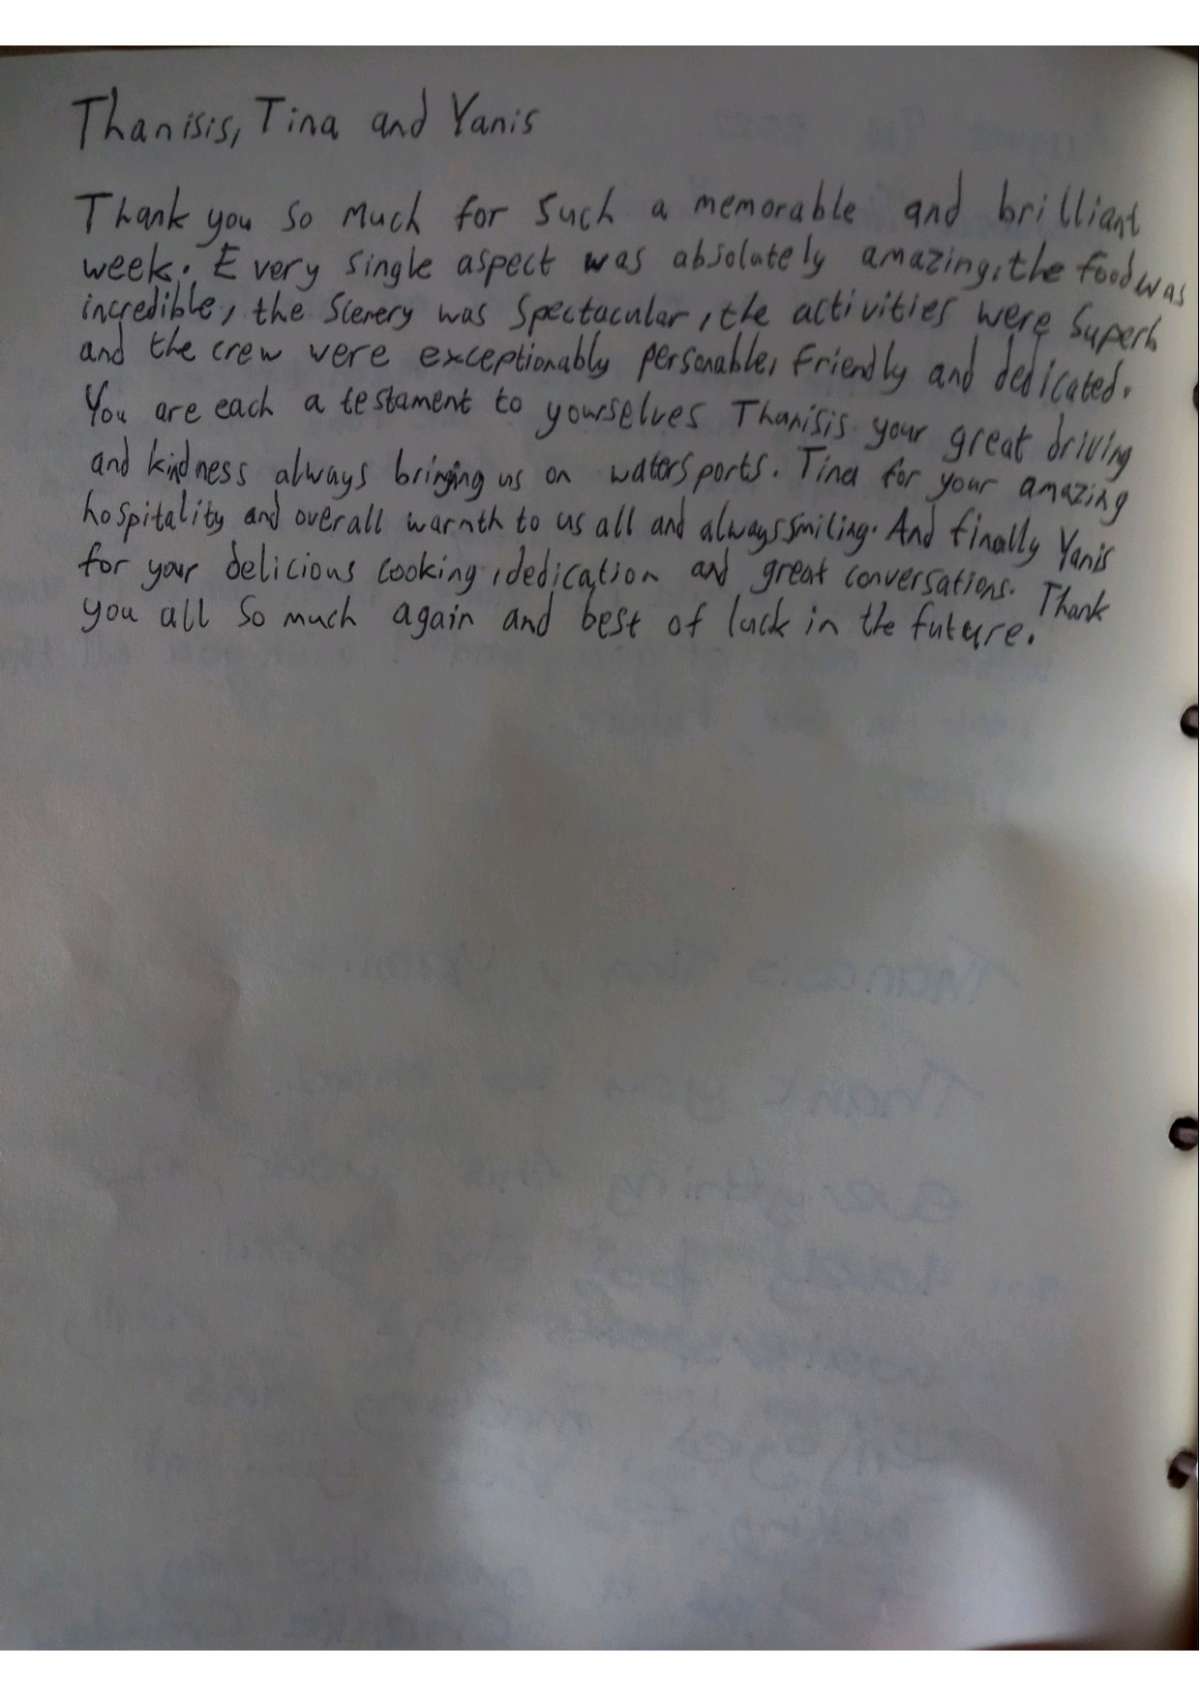 Thanisis, Tina and Yanis
Thank you so much for such a memorable and brilliant
week. Every single aspect was absolutely amazing, the food was
incredible, the scenery was spectacular, the activities were superb
and the crew were exceptionably personable, friendly and dedicated.
You are each a testament to yourselves Thanisis your great driving
and kindness always bringing us on watersports. Tina for your amazing
hospitality and overall warmth to us all and always smiling. And finally Yanis
for your delicious cooking, dedication and great conversations. Thank
you all so much again and best of luck in the future.